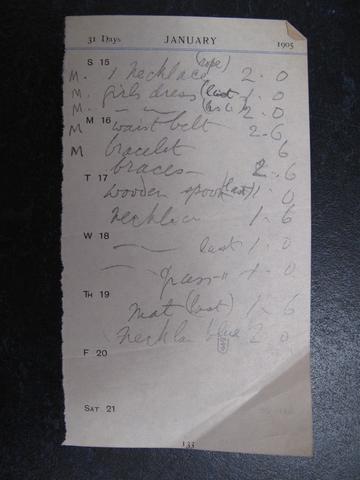 31 Days JANUARY 1905
S 15 (rope)
M. 1 necklace 2 . 0
M. girls dress (last 1 . 0
M. — — 2 . 0
M 16
M waist belt 2 - 6
M bracelet 6
braces 2 . 6
T 17
wooden spoon (last) 1 . 0
necklace 1 . 6
W 18
— last 1 . 0
— grass 1 . 0
Th 19
mat (last) 1 . 6
necklace blue 2 . 0
F 20
Sat 21
133